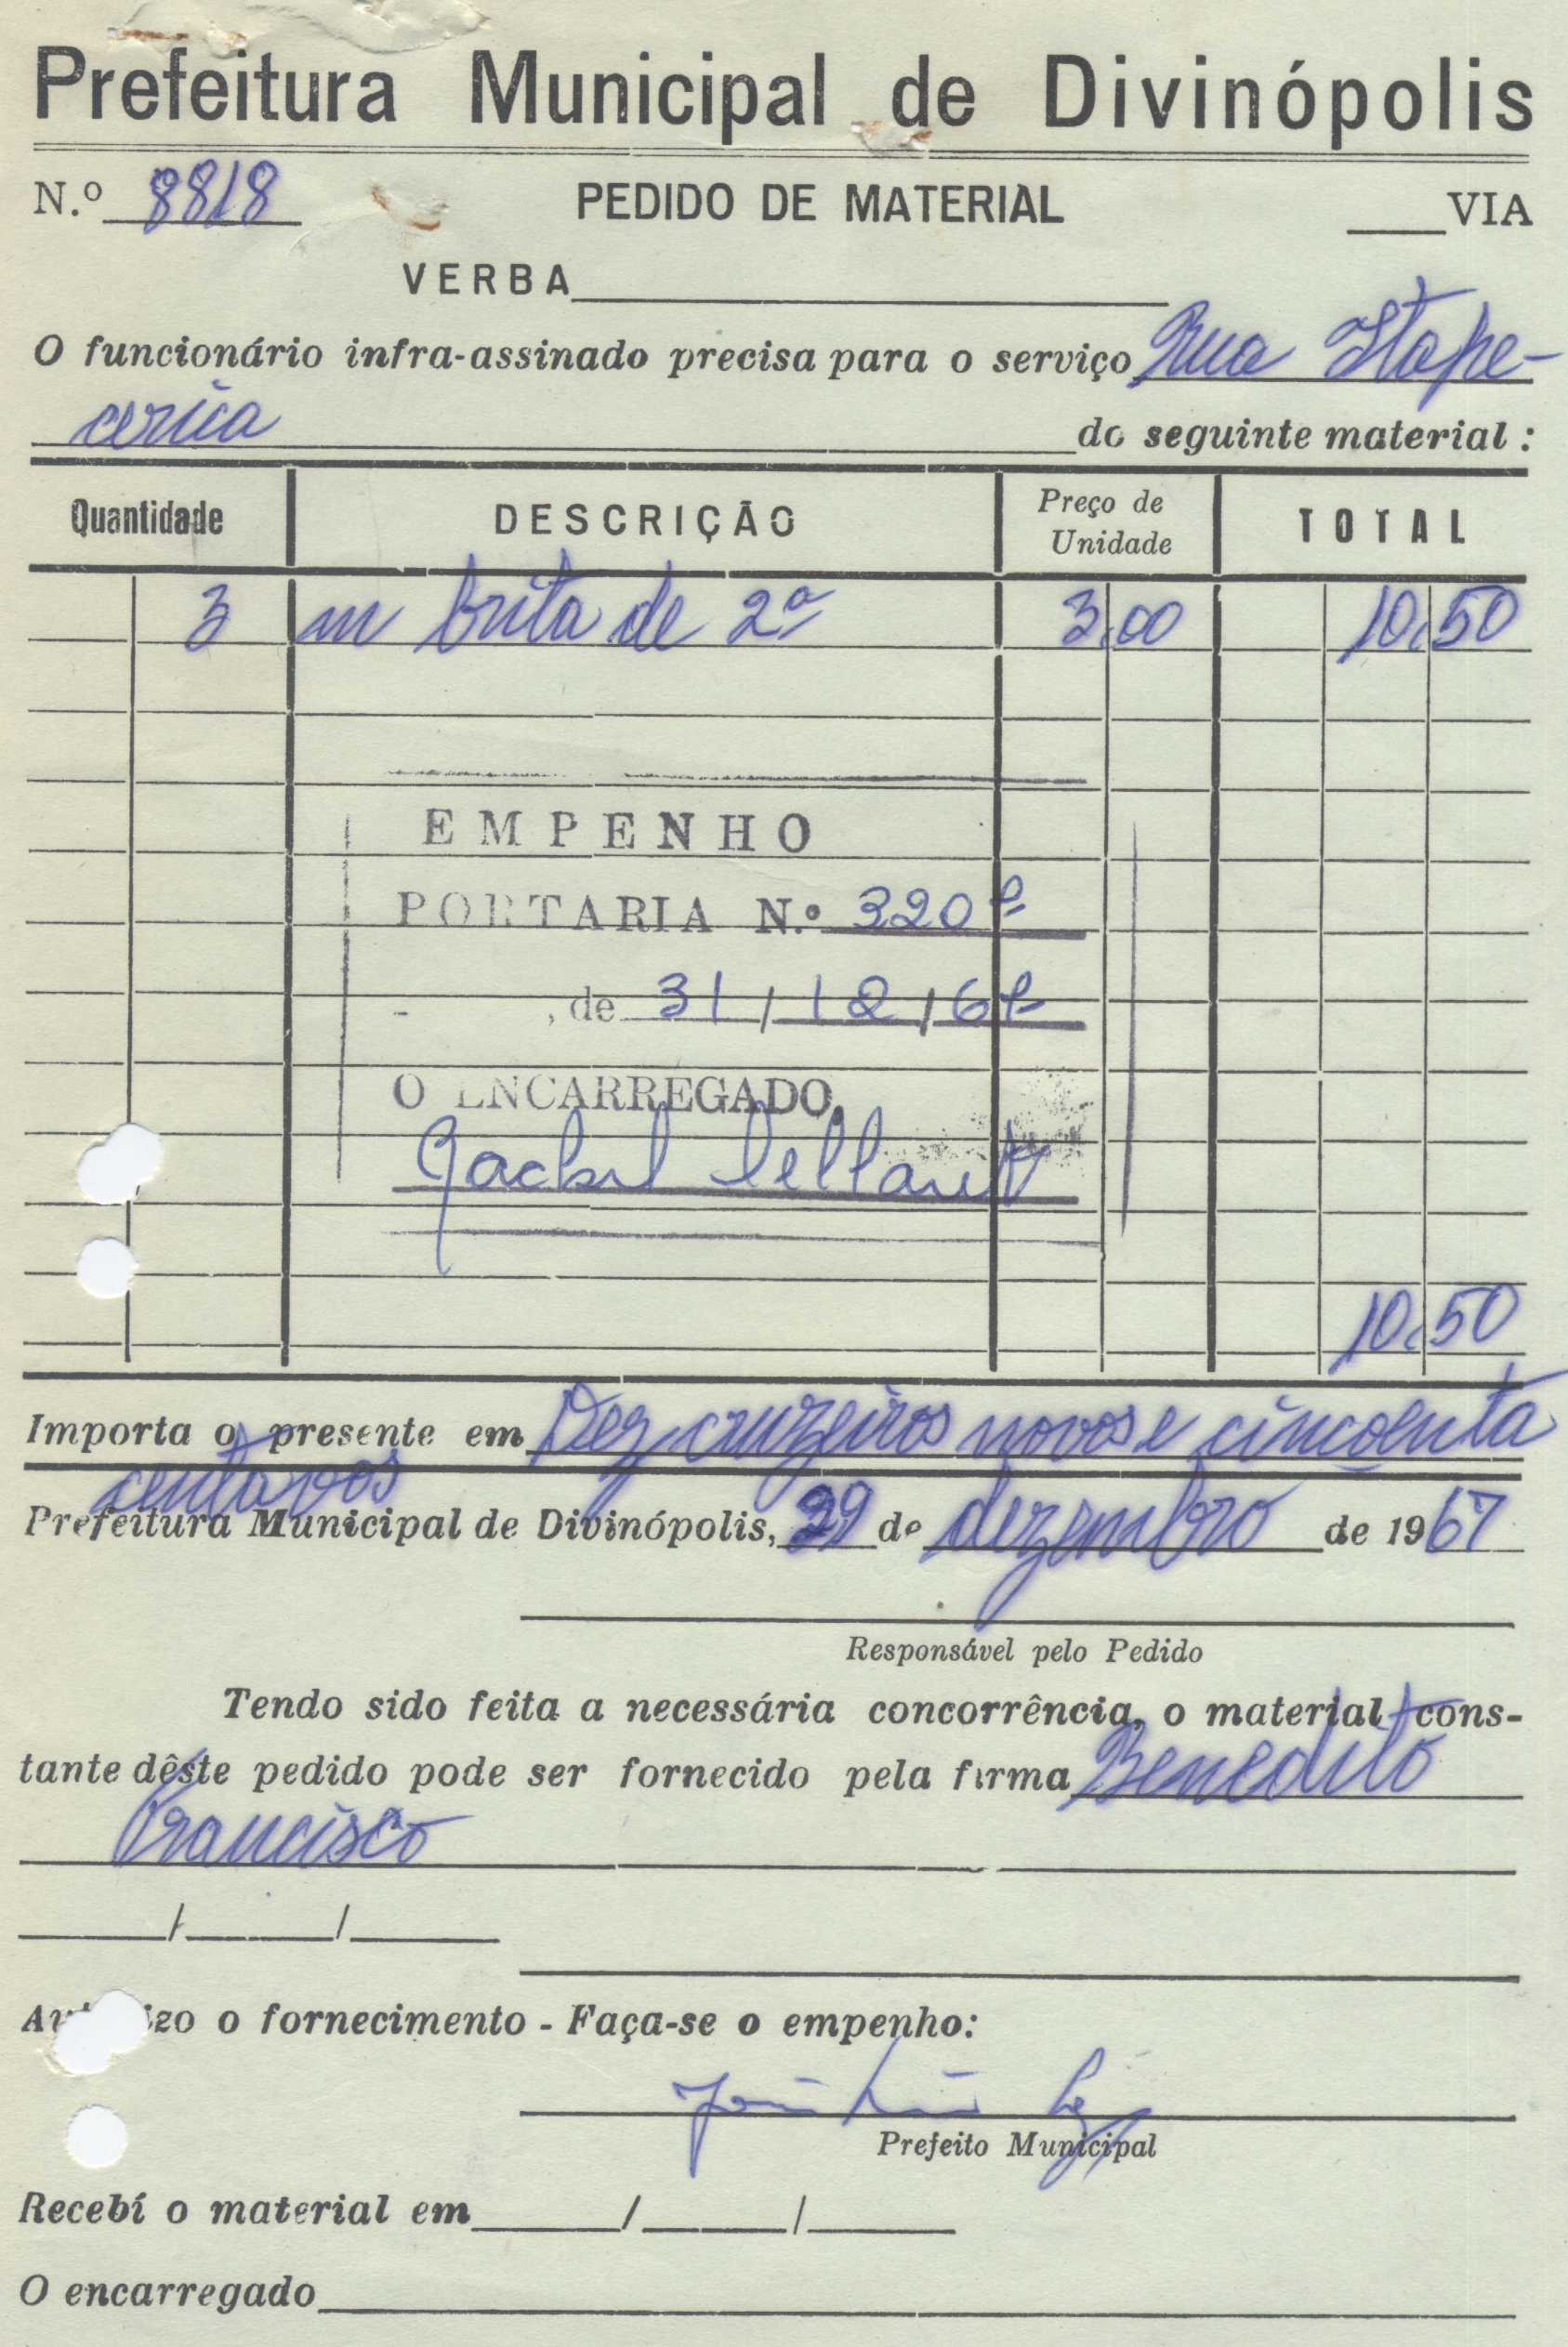 Prefeitura Municipal de Divinópolis
N.º 8818 PEDIDO DE MATERIAL ____VIA
VERBA
O funcionário infra-assinado precisa para o serviço Rua Itape-
cerica do seguinte material :
Quantidade DESCRIÇÃO Preço de Unidade TOTAL
3 m brita de 2ª 3,00 10,50
EMPENHO
PORTARIA N.º 320
, de 31 / 12 / 6
O ENCARREGADO,
10,50
Importa o presente em Dez cruzeiros novos e cincoenta
centavos
Prefeitura Municipal de Divinópolis, 29 de dezembro de 1967
Responsável pelo Pedido
Tendo sido feita a necessária concorrência, o material cons-
tante dêste pedido pode ser fornecido pela firma Benedito
Francisco
____/____/____
Autorizo o fornecimento - Faça-se o empenho:
Prefeito Municipal
Recebí o material em ____/____/____
O encarregado